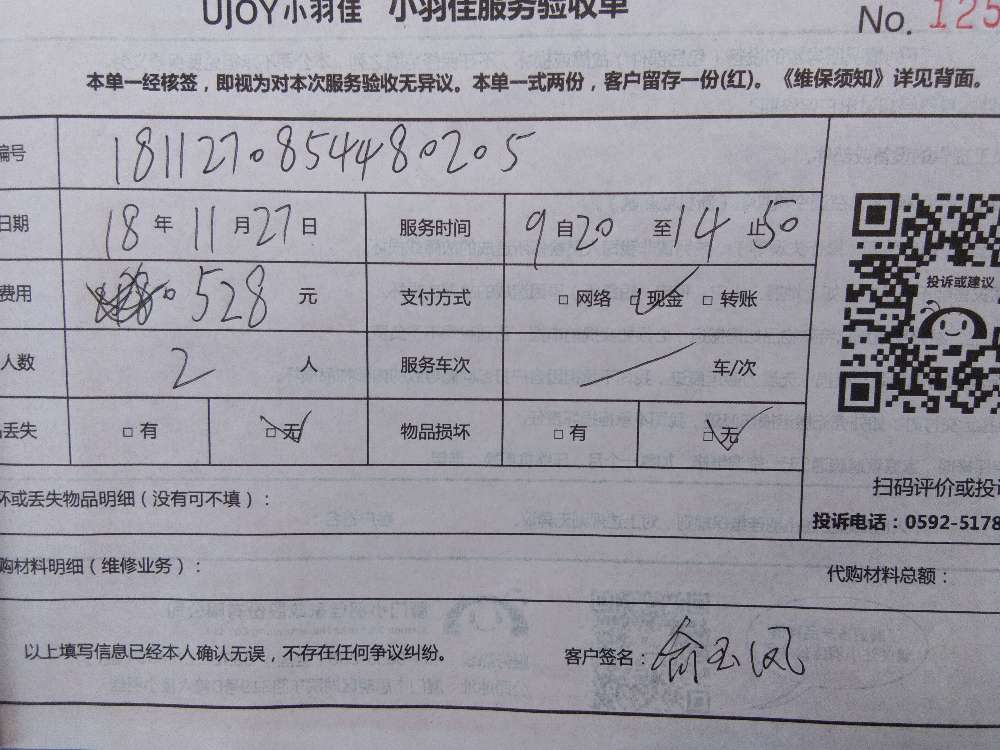 UJOY小羽佳 小羽佳服务验收单
No. 125
本单一经核签，即视为对本次服务验收无异议。本单一式两份，客户留存一份(红)。《维保须知》详见背面。
编号 1811270854480205
日期 18 年 11 月 27 日 服务时间 9 自 20 至 14 止 50
费用 528 元 支付方式 □ 网络 □ 现金 □ 转账
人数 2 人 服务车次 / 车/次
丢失 □ 有 □ 无 物品损坏 □ 有 □ 无
投诉或建议
扫码评价或投诉
投诉电话：0592-5178
坏或丢失物品明细（没有可不填）：
购材料明细（维修业务）： 代购材料总额：
以上填写信息已经本人确认无误，不存在任何争议纠纷。 客户签名：俞玉凤